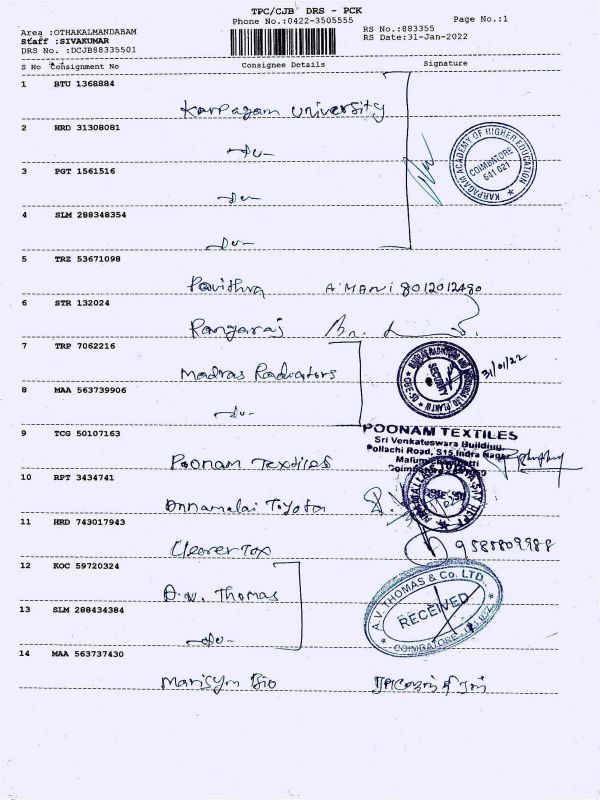 TPC/CJB DRS - PCK
Phone No.:0422-3505555
Page No.:1
Area :OTHAKALMANDABAM
Staff :SIVAKUMAR
DRS No. :DCJB88335501
RS No.:883355
RS Date:31-Jan-2022
S No Consignment No Consignee Details Signature
1 BTU 1368884
Karpagam University
2 HRD 31308081
-Do-
KARPAGAM ACADEMY OF HIGHER EDUCATION
COIMBATORE
641 021
3 PGT 1561516
-Do-
4 SLM 288348354
-Do-
5 TRZ 53671098
Pavithra A.MANI 8012012480
6 STR 132024
Rangaraj
7 TRP 7062216
Madras Radiators
SECURITY
31/01/22
8 MAA 563739906
-Do-
9 TCG 50107163
POONAM TEXTILES
Sri Venkateswara Building,
Pollachi Road, S15, Indra Nagar
Poonam Textiles
10 RPT 3434741
Annamalai Toyota
11 HRD 743017943
Clearer Tox
9588809988
12 KOC 59720324
A.V. Thomas
A.V. THOMAS & Co. LTD.
RECEIVED
COIMBATORE
13 SLM 288434384
-Do-
14 MAA 563737430
Marisym Bio